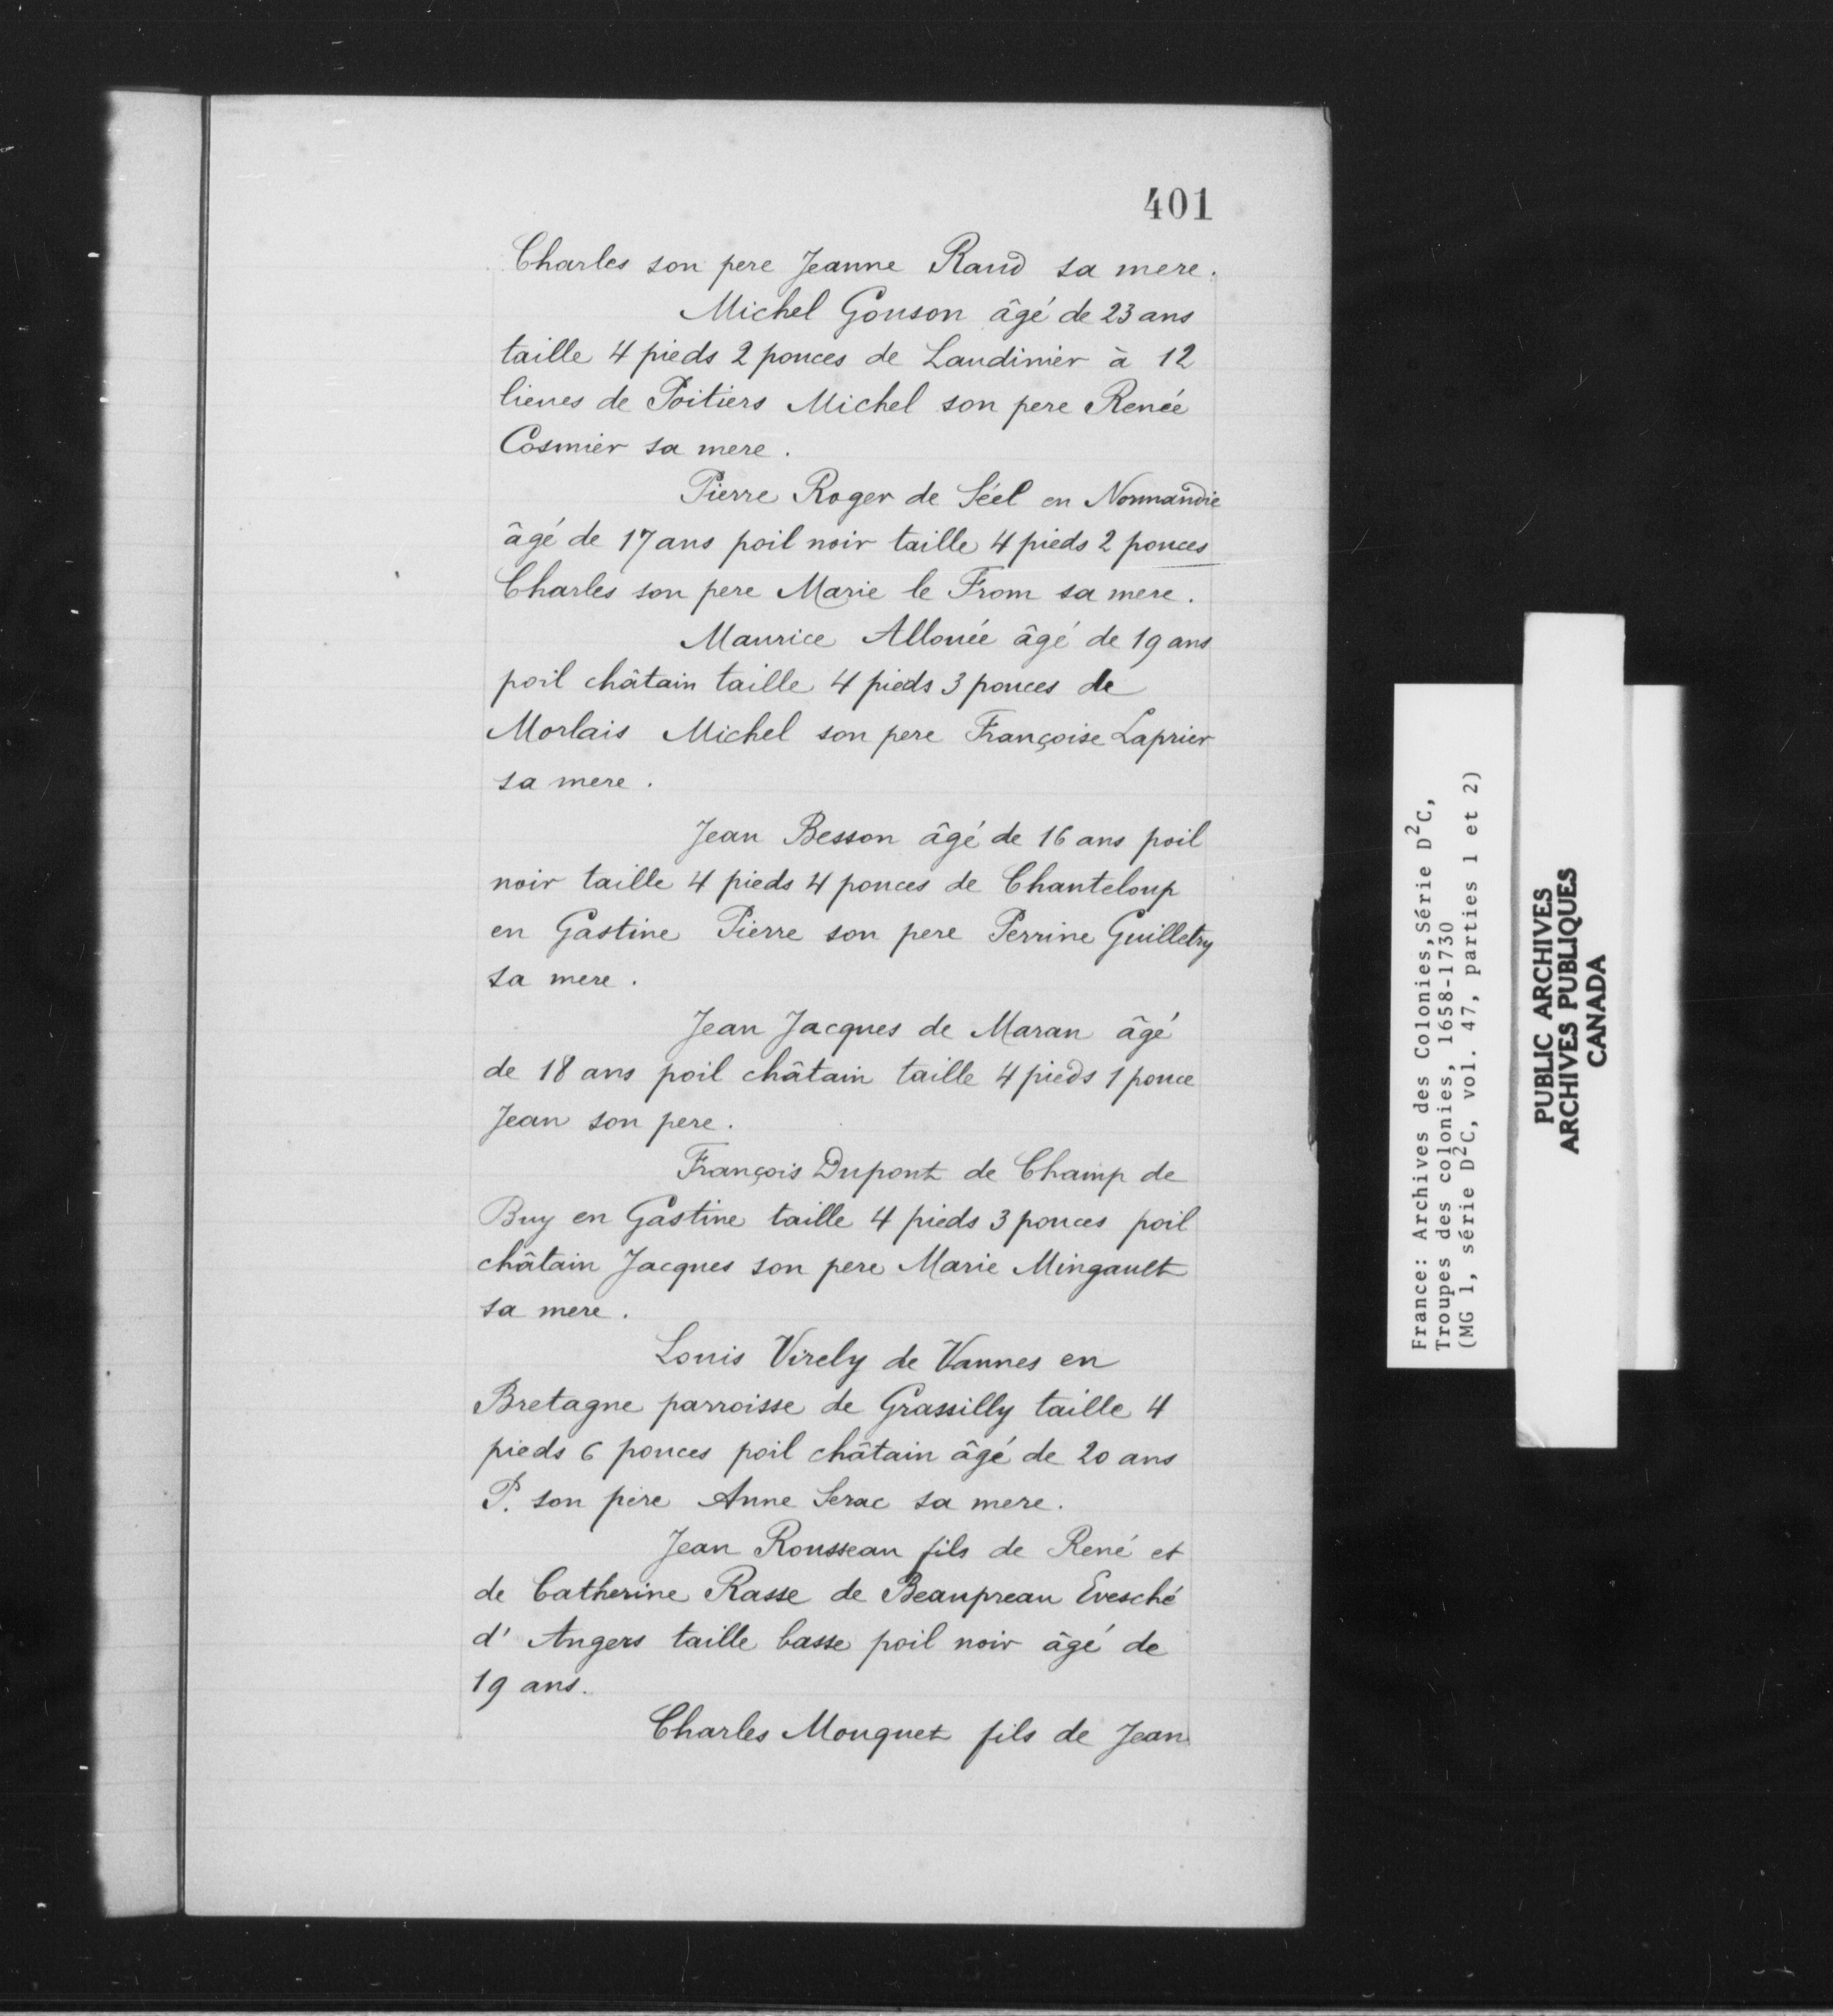 401
Charles son pere Jeanne Raud sa mere.
Michel Gouson âgé de 23 ans
taille 4 pieds 2 pouces de Laudinier à 12
lieues de Poitiers Michel son pere Renée
Cosmier sa mere.
Pierre Roger de Séel en Normandie
âgé de 17 ans poil noir taille 4 pieds 2 pouces
Charles son pere Marie le From sa mere.
Maurice Allouée âgé de 19 ans
poil châtain taille 4 pieds 3 pouces de
Morlais Michel son pere Françoise Laprier
sa mere.
Jean Besson âgé de 16 ans poil
noir taille 4 pieds 4 pouces de Chanteloup
en Gastine Pierre son pere Perrine Guilletry
sa mere.
Jean Jacques de Maran âgé
de 18 ans poil châtain taille 4 pieds 1 pouce
Jean son pere.
François Dupont de Champ de
Buy en Gastine taille 4 pieds 3 pouces poil
châtain Jacques son pere Marie Mingault
sa mere.
Louis Virely de Vannes en
Bretagne parroisse de Grassilly taille 4
pieds 6 pouces poil châtain âgé de 20 ans
P. son père Anne Serac sa mere.
Jean Rousseau fils de René et
de Catherine Rasse de Beaupreau Evesché
d' Angers taille basse poil noir âgé de
19 ans.
Charles Mouquet fils de Jean
France: Archives des Colonies, Série D²C,
Troupes des colonies, 1658-1730
(MG 1, série D²C, vol. 47, parties 1 et 2)
PUBLIC ARCHIVES
ARCHIVES PUBLIQUES
CANADA